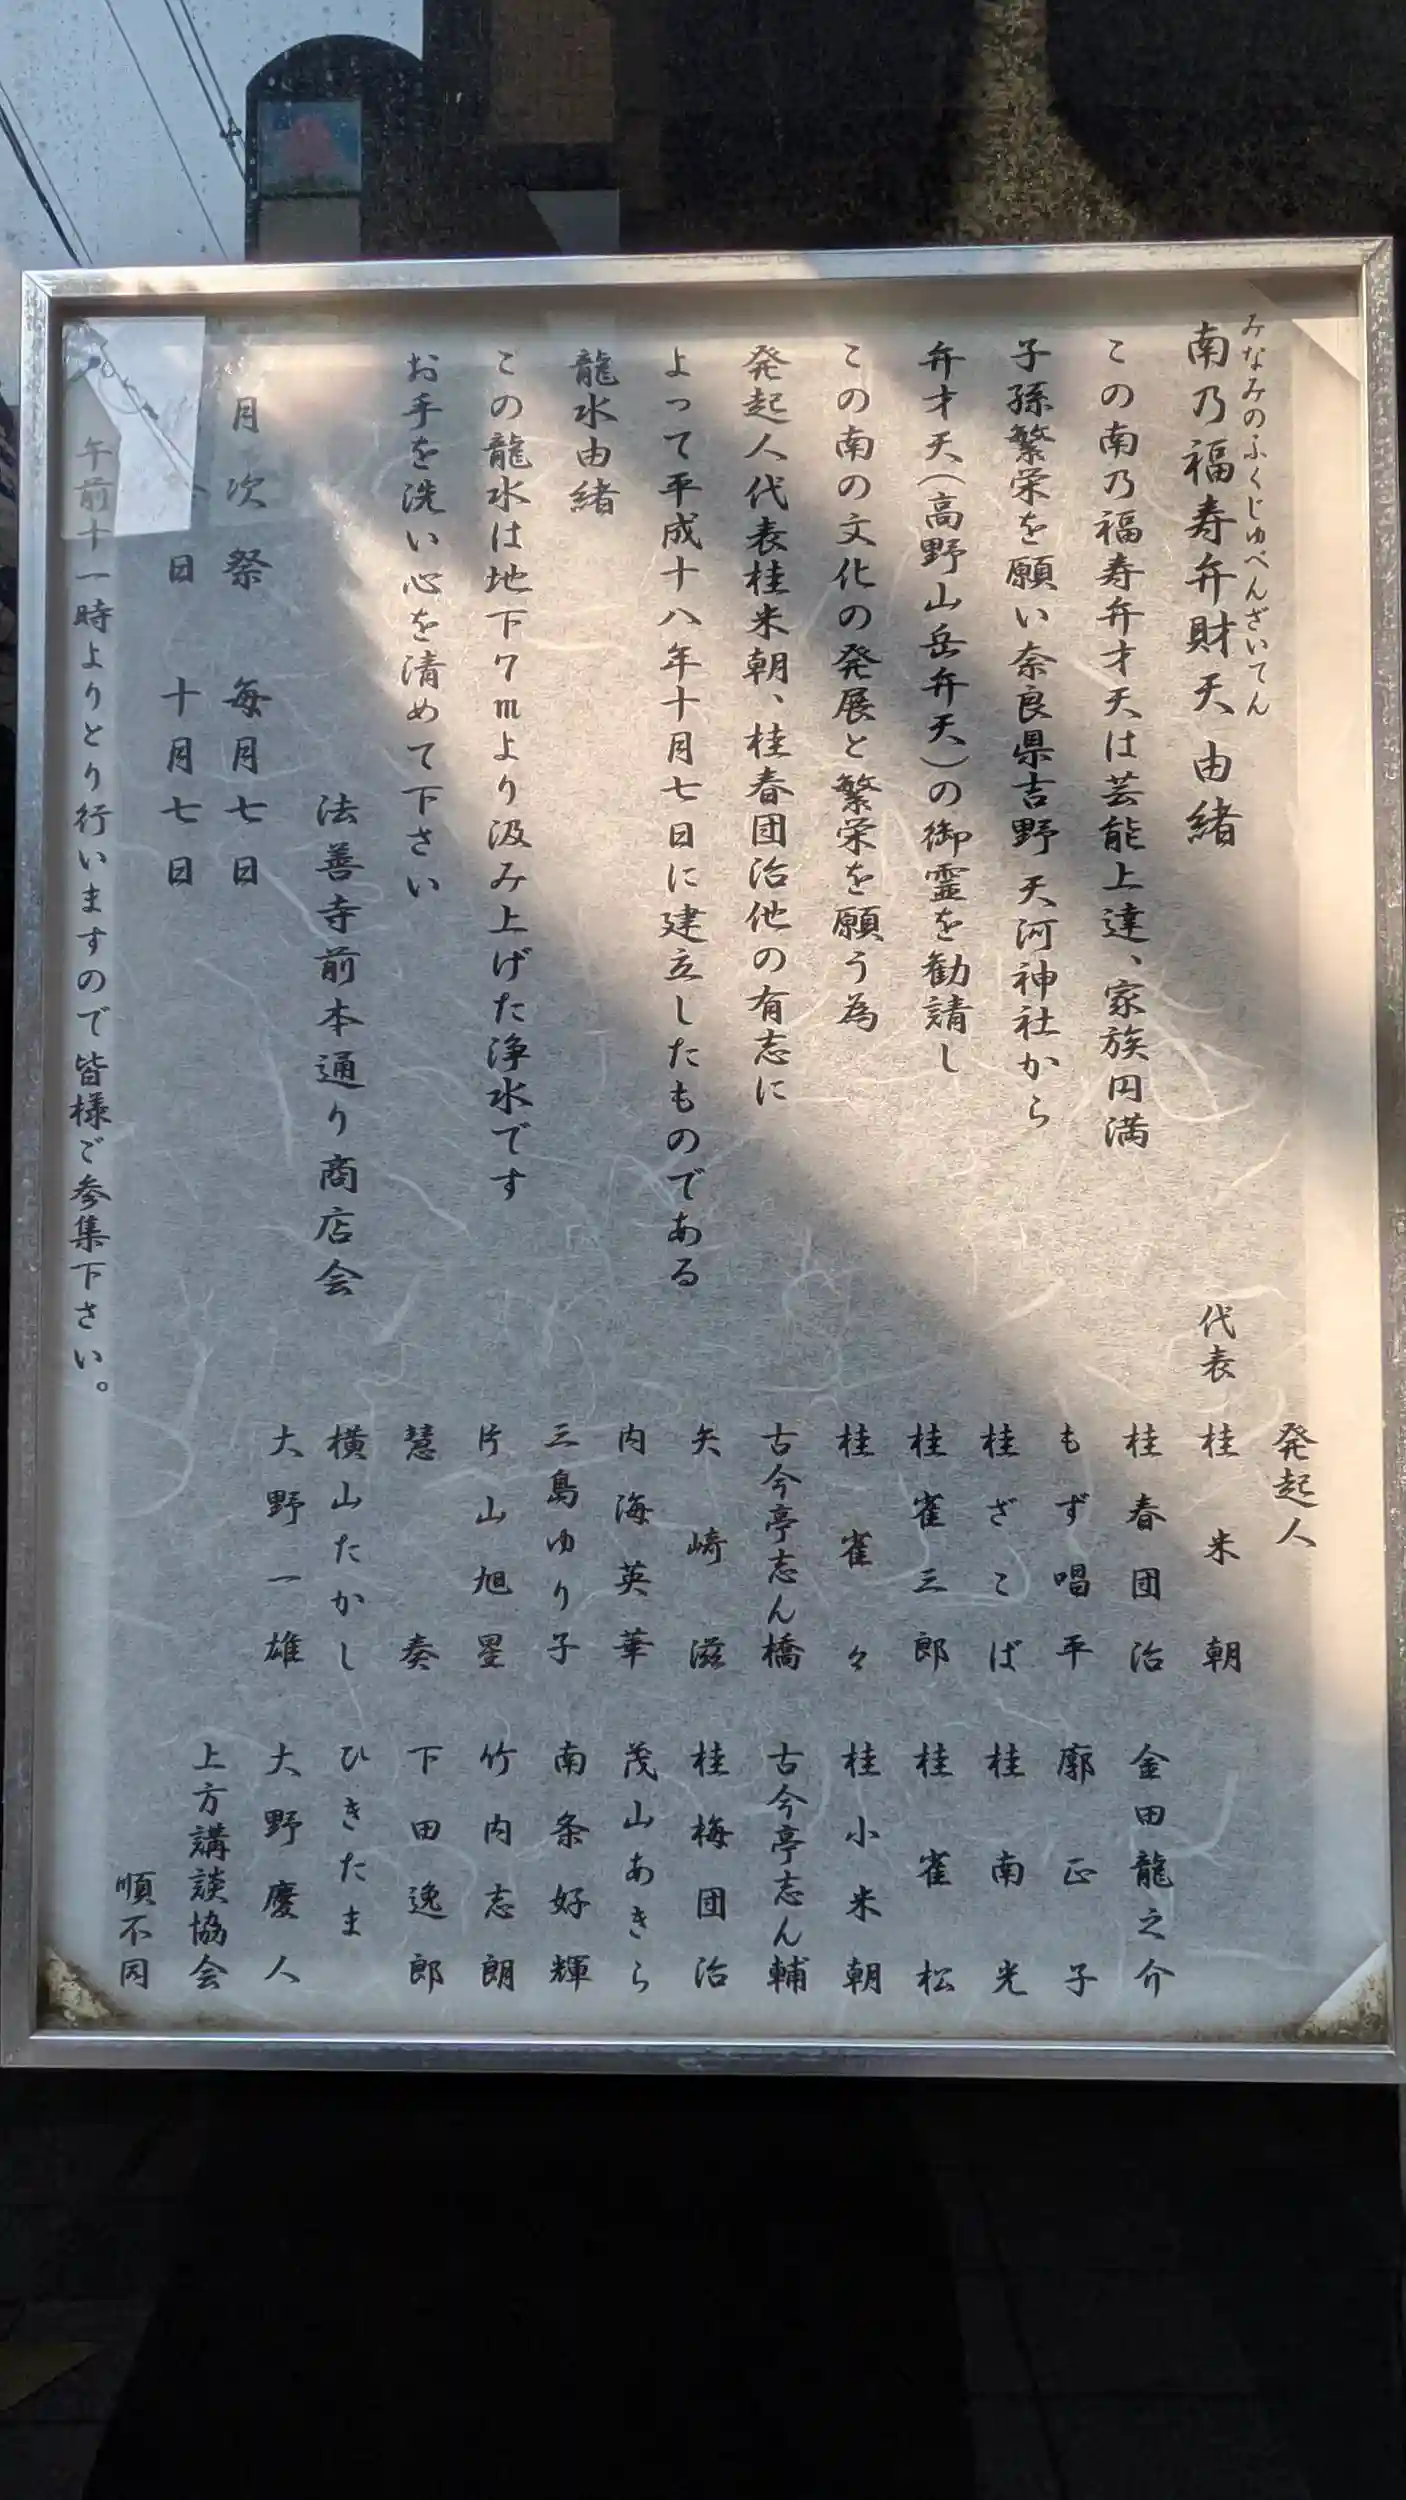 みなみのふくじゅべんざいてん
南乃福寿弁財天由緒
この南乃福寿弁才天は芸能上達、家族円満
子孫繁栄を願い奈良県吉野天河神社から
弁才天(高野山岳弁天)の御霊を勧請し
この南の文化の発展と繁栄を願う為
発起人代表桂米朝、桂春団治他の有志に
よって平成十八年十月七日に建立したものである
龍水由緒
この龍水は地下7mより汲み上げた浄水です
お手を洗い心を清めて下さい
法善寺前本通り商店会
月次祭 毎月七日
日 十月七日
午前十一時よりとり行いますので皆様ご参集下さい。
発起人
代表 桂米朝
桂春団治 金田龍之介
もず唱平 廓正子
桂ざこば 桂南光
桂雀三郎 桂雀松
桂雀々 桂小米朝
古今亭志ん橋 古今亭志ん輔
矢崎滋 桂梅団治
内海英華 茂山あきら
三島ゆり子 南条好輝
片山旭星 竹内志朗
慧奏 下田逸郎
横山たかし ひきたま
大野一雄 大野慶人
上方講談協会
順不同